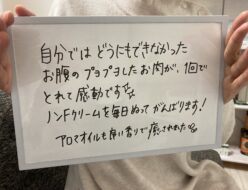 自分では どうにもできなかった
お腹の プヨプヨした お肉が、1回で
とれて 感動です☆☆
ノンFクリームを毎日ぬって がんばります!
アロマオイルも良い香りで癒されました